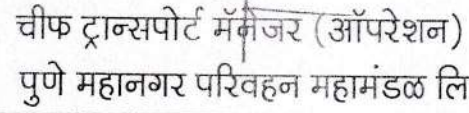 चीफ ट्रान्सपोर्ट मॅनेजर (ऑपरेशन)
पुणे महानगर परिवहन महामंडळ लि